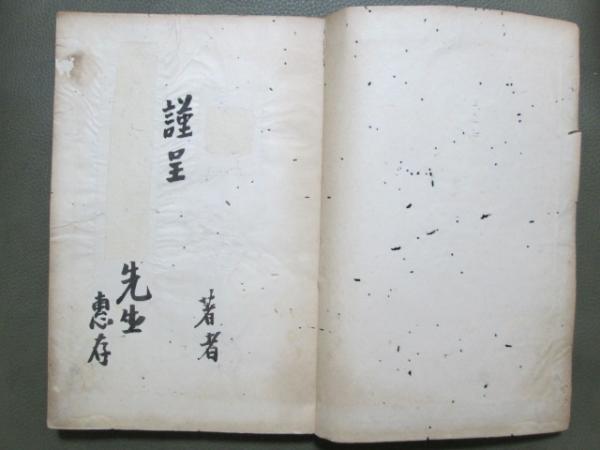 著者
謹呈
先生
惠存